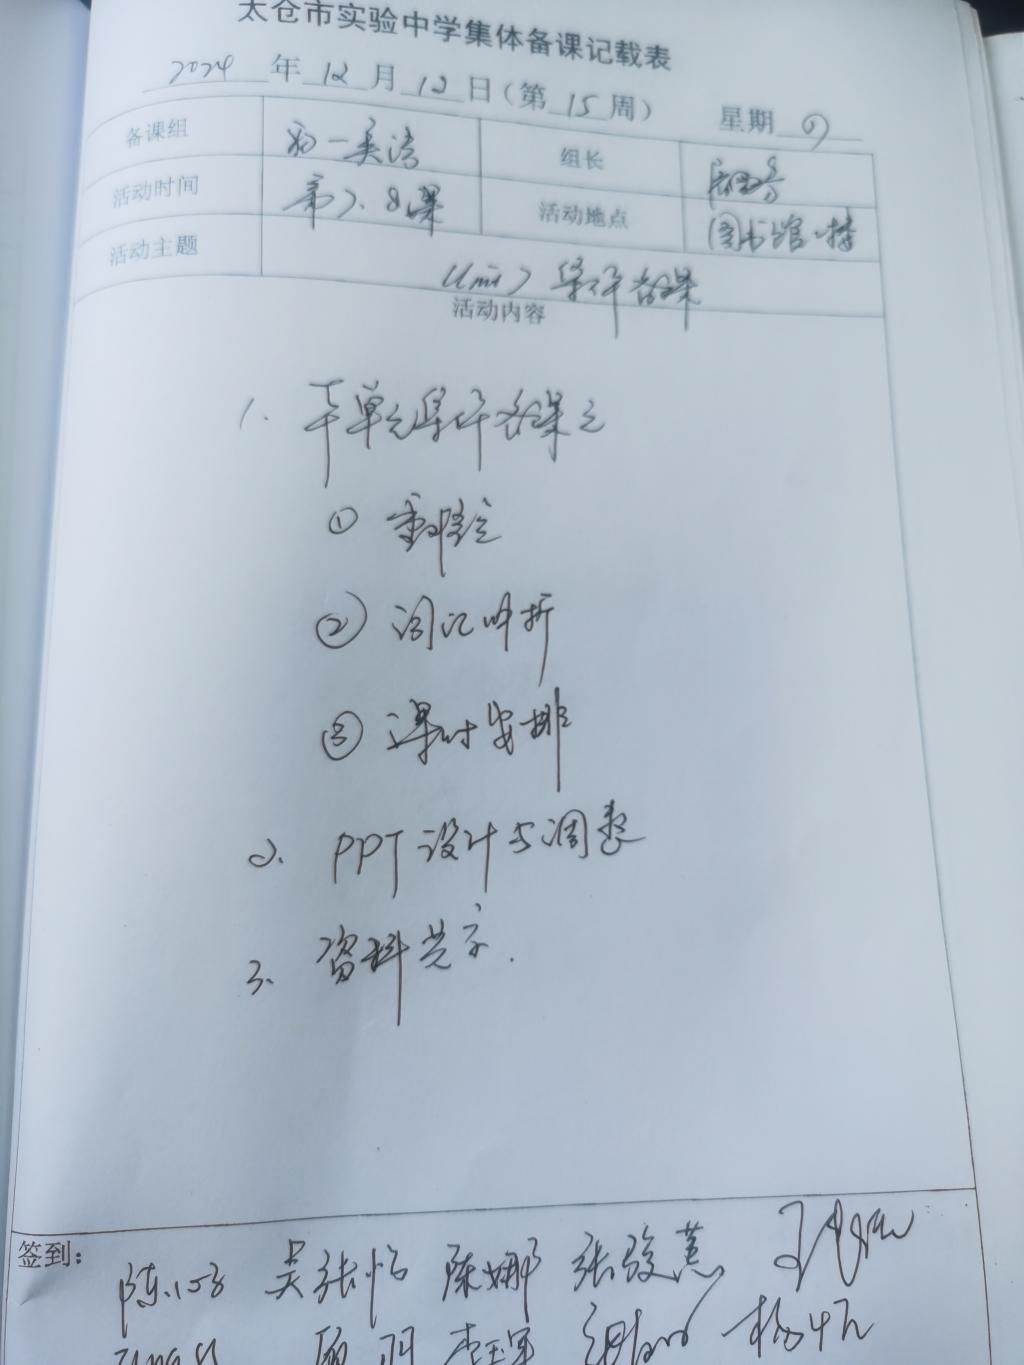 太仓市实验中学集体备课记载表
2024 年 12 月 12 日（第 15 周） 星期 四
备课组 初一英语 组长
活动时间 第7、8课 活动地点 图书馆一楼
活动主题 Unit 7 集体备课
活动内容
1. 本单元集体备课
① 重难点
② 词汇
③ 课时安排
2. PPT 设计与调整
3. 资料共享.
签到：
吴张怡 陈娜